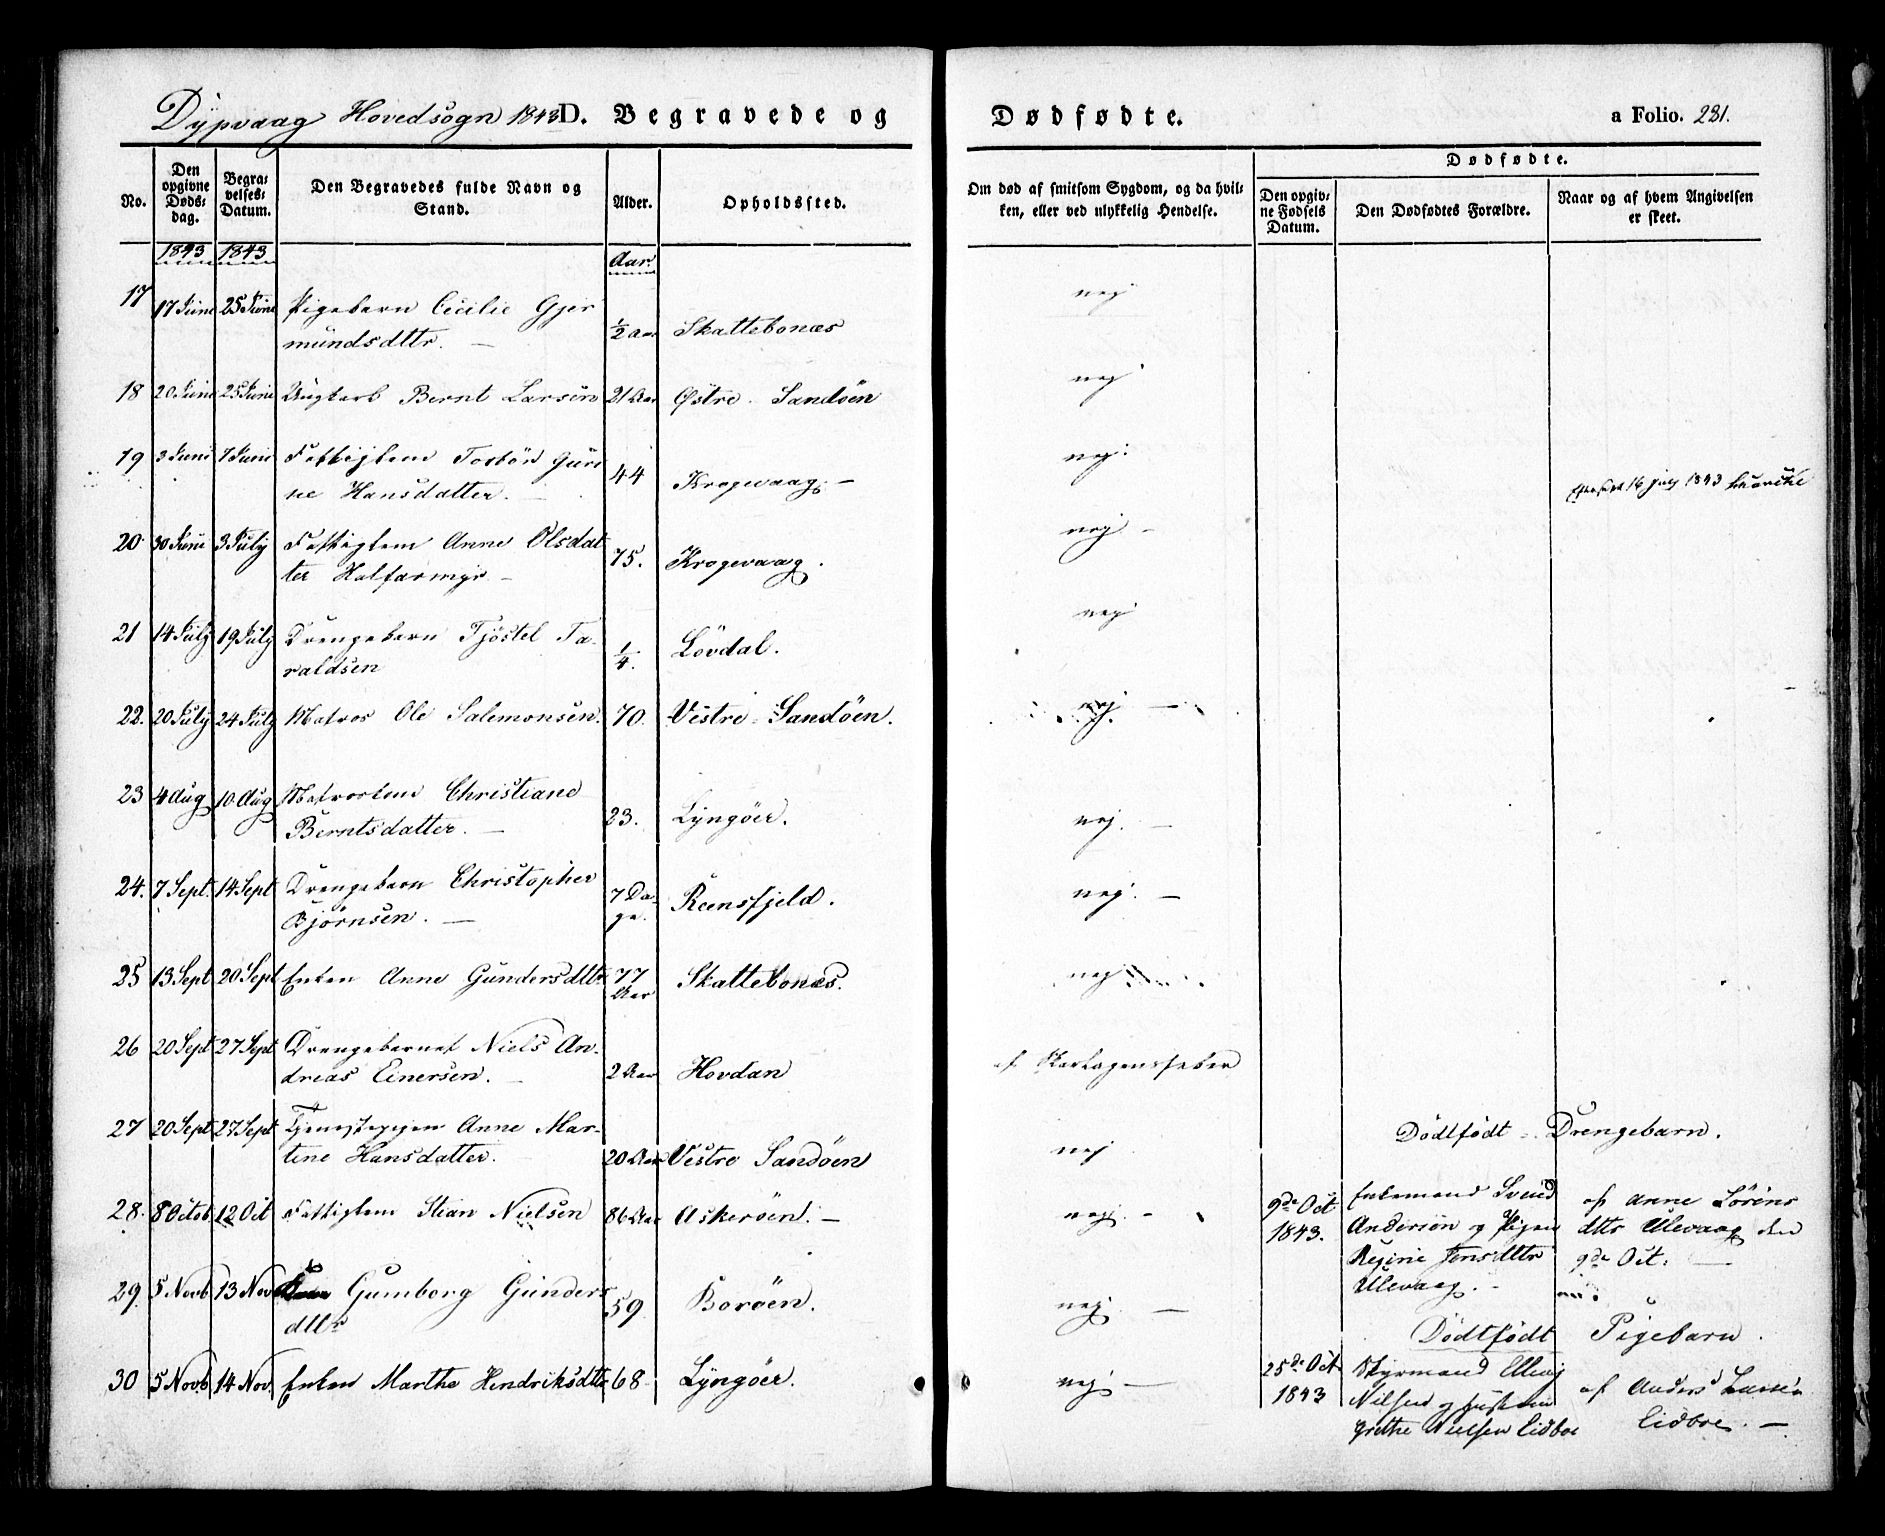 Dypvaag Hovedsogn 1843 D. Begravede og Dødfødte. a Folio. 231.
No.
Den opgivne Døds-dag.
Begra-velses-Datum.
Den Begravedes fulde Navn og Stand.
Alder.
Opholdssted.
Om død af smitsom Sygdom, og da hvil-
ken, eller ved ulykkelig Hendelse.
Dødfødte.
Den opgiv-ne Fødsels Datum.
Den Dødfødtes Forældre.
Naar og af hvem Angivelsen er skeet.
1843 1843 Aar.
17 17 Juni 25 Juni Pigebarn Cecilie Gjer
mundsdttr. — 1/2 Aar Skattebonæs nej
18 20 Juni 25 Juni Ungkarl Bernt Larsen 21 Aar Østre Sandöen nej
19 3 Juni 7 Juni Fattiglem Torbör Guri
ne Hansdatter. — 44 Krogevaag. — nej.
16 July 1843
20 30 Juni 3 July Fattiglem Anne Olsdat
ter Holfarmyr — 75. Krogevaag. nej —
21 14 July 19 July Drengebarn Tjöstel Ta-
raldsen 1/4. Lövdal. nej
22. 20 July 24 July Matros Ole Salemonsen. 70. Vestre Sandöen. nej —
23 4 Aug 10 Aug Matroskone Christiane
Berntsdatter. — 23. Lyngöer. nej. —
24. 7 Sept. 14 Sept Drengebarn Christopher
Bjørnsen. — 7 Da-
ge. Reensfjeld. nej. —
25 13 Sept 20 Sept Enken Anne Gundersdttr 77
Aar Skattebonæs. nej
26 20 Sept 27 Sept Drengebarnet Niels An-
dreas Einersen. — 2 Aar Hovdan af Skarlagensfeber
27 20 Sept 27 Sept Tjenestepigen Anne Mar-
tine Hansdatter. — 20 Aar Vestre Sandöen nej
Dödtfödt Drengebarn.
28. 8 Octob 12 Oct Fattiglem Stian Nielsen 86 Aar Askeröen. — nej. —
9de Oct
1843.
Enkemand Svend
Andersön og Pigen
Regine Jensdttr
Ulevaag. —
af Anne Sörens
dttr Ulevaag den
9de Oct. —
29. 5 Novb 13 Nov Gumborg Gunders
dttr 59 Boröen. nej. —
Dödtfödt Pigebarn.
30 5 Novb 14 Nov. Enken Marthe Hendriksdttr 68 Lyngöer. nej —
25de Oct
1843
Styrmand Ellevj
Nielsen og Hustru
Grethe Nielsen Eidboe
af Anders Larsen
Eidboe. —